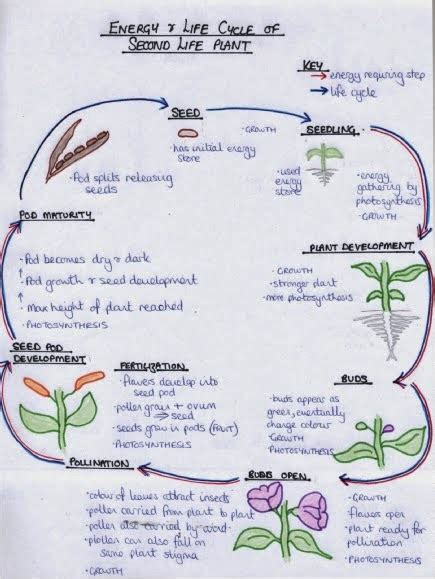 ENERGY & LIFE CYCLE OF
SECOND LIFE PLANT
KEY
→ energy requiring step
→ life cycle
SEED
• has initial energy
store
• GROWTH
SEEDLING
• used
energy
store
• energy
gathering by
photosynthesis
• GROWTH
PLANT DEVELOPMENT
• GROWTH
• stronger plant
• more photosynthesis
BUDS
• buds appear as
green, eventually
change colour
• GROWTH
PHOTOSYNTHESIS
BUDS OPEN
• GROWTH
flowers open
• plant ready for
pollination
• PHOTOSYNTHESIS
POLLINATION
• colour of leaves attract insects
• pollen carried from plant to plant
• pollen also carried by wind
• pollen can also fall on
same plant stigma
• GROWTH
FERTILIZATION
• flowers develop into
seed pod
• pollen grain + ovum
⇒ seed
• seeds grow in pods (FRUIT)
• PHOTOSYNTHESIS
SEED POD
DEVELOPMENT
POD MATURITY
• Pod becomes dry & dark
↑
• Pod growth & seed development
↑
• max height of plant reached
• PHOTOSYNTHESIS
• Pod splits releasing
seeds